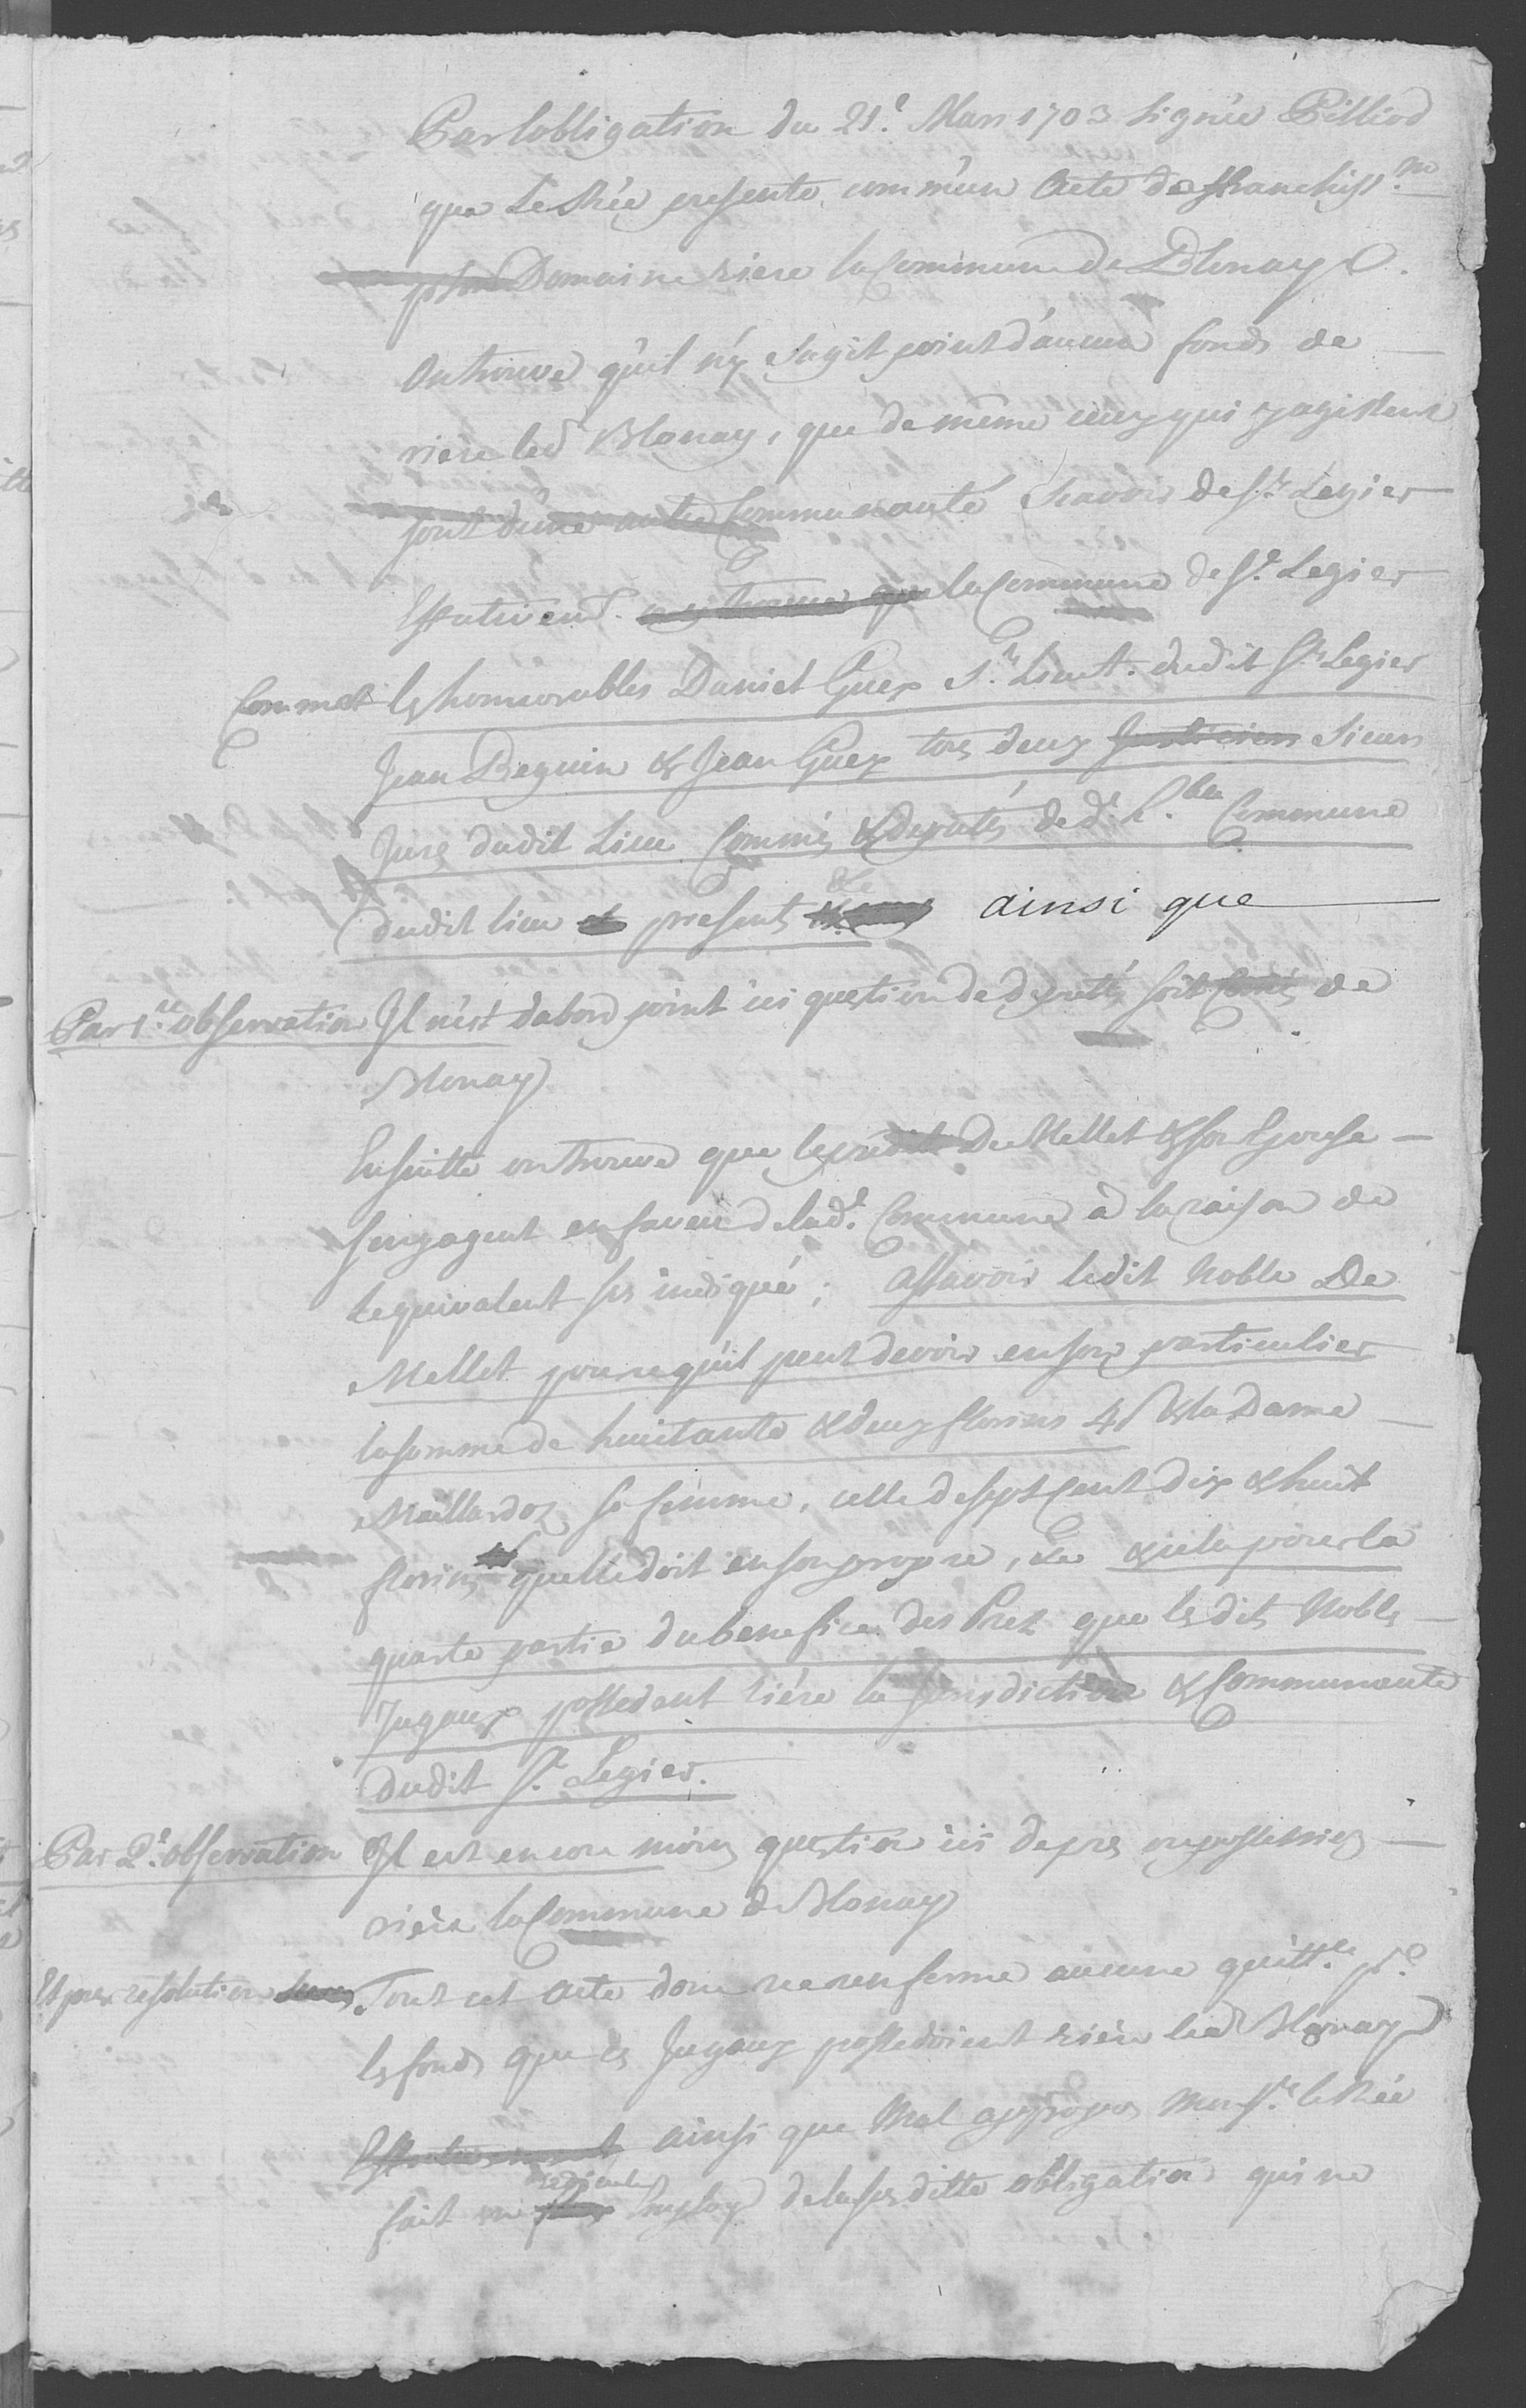 Par l'obligation du 21.e Mars 1703 signée Pilliod
que Le Rée presente comm'un Acte d'affranchiss.m
Domaine riere la Commune de Blonay
On trouve qu'il n'y s'agit point d'aucun fonds de
riere led Blonay, que de même ceux qui y agissent
sont d'une autre Communauté Savoir de St. Legier
Effectivemt. la Commune de St. Legier
Commet les honnorables Daniel Guex Sr. Lieut. dudit St. Legier
Jean Beguin & Jean Guex tous deux Justiciers Sieurs
Jurés dudit Lieu Commis & deputés de d.e h.ble Commune
dudit lieu et presents &c ainsi que
Par 1.re observation Il n'est dabord point ici question de deputés soit de
Blonay
Ensuitte on trouve que le De Mellet & son Epouse
s'engagent en faveur de lad.e Commune à la raison de
l'equivalent sus indiqué; Assavoir ledit Noble De
Mellet pour ce qu'il peut devoir en son particulier
la somme de huitante & deux florins 4 s & la Dame
Maillardoz sa femme, celle de sept cent dix & huit
florins qu'elle doit en son propre, &c & cela pour la
quarte partie du benefice des Prez que lesdits Nobles
Jugaux possedent riére la Jurisdiction & Communauté
dudit St. Legier.
Par 2.e observation Il est encore moins question ici de prés ou possessions
rière la Commune de Blonay
Et par resolution Tout cet Acte donc ne renferme aucune quitt.ce p.r
les fonds que les Jugaux possedoient rière led Blonay
Effectivement ainsi que Mal appropos Mons.r le Rée
fait un Employ de la susditte obligation qui ne